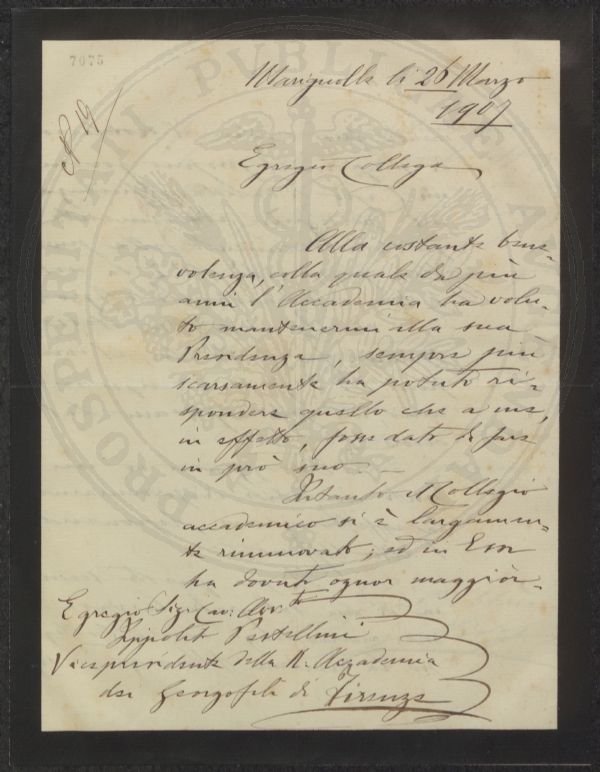 7075
N 19
Marignolle li 26 Marzo
1907
Egregio Collega
Alla costante bene-
volenza, colla quale da più
anni l'Accademia ha volu-
to mantenermi alla sua
Presidenza, sempre più
scarsamente ha potuto ri-
spondere quello che a me,
in effetto, fosse dato di fare
in prò suo.
Intanto il Collegio
accademico si è largamen-
te rinnuovato; ed in Esso
ha dovuto ognor maggior-
Egregio Sig. Cav. Avv.to
Ippolito Pestellini
Vicepresidente della R. Accademia
dei Georgofili di Firenze
PROSPERITATI PUBLICAE AUGENDAE